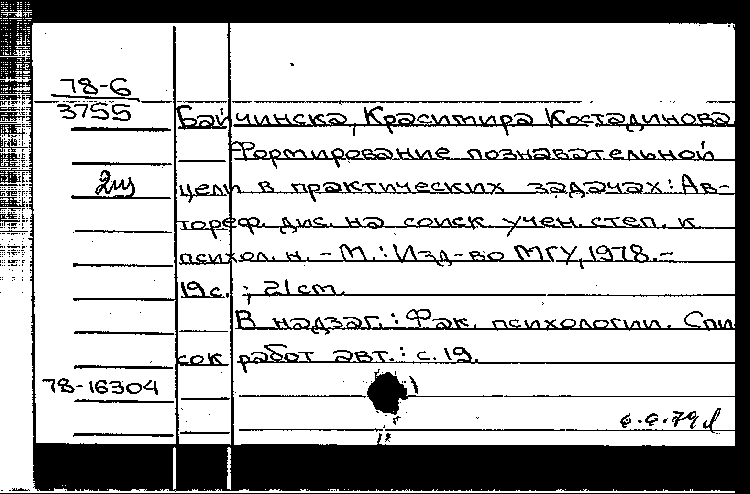 78-6
3755
Байчинска, Красимира Костадинова
Формирование познавательной
2из
цели в практических задачах: Ав-
тореф. дис. на соиск. учен. степ. к.
психол. н. - М.: Изд-во МГУ, 1978. -
19 с. ; 21 cm.
В надзаг.: Фак. психологии. Спи
сок работ авт.: с. 19.
78-16304
6.6.79